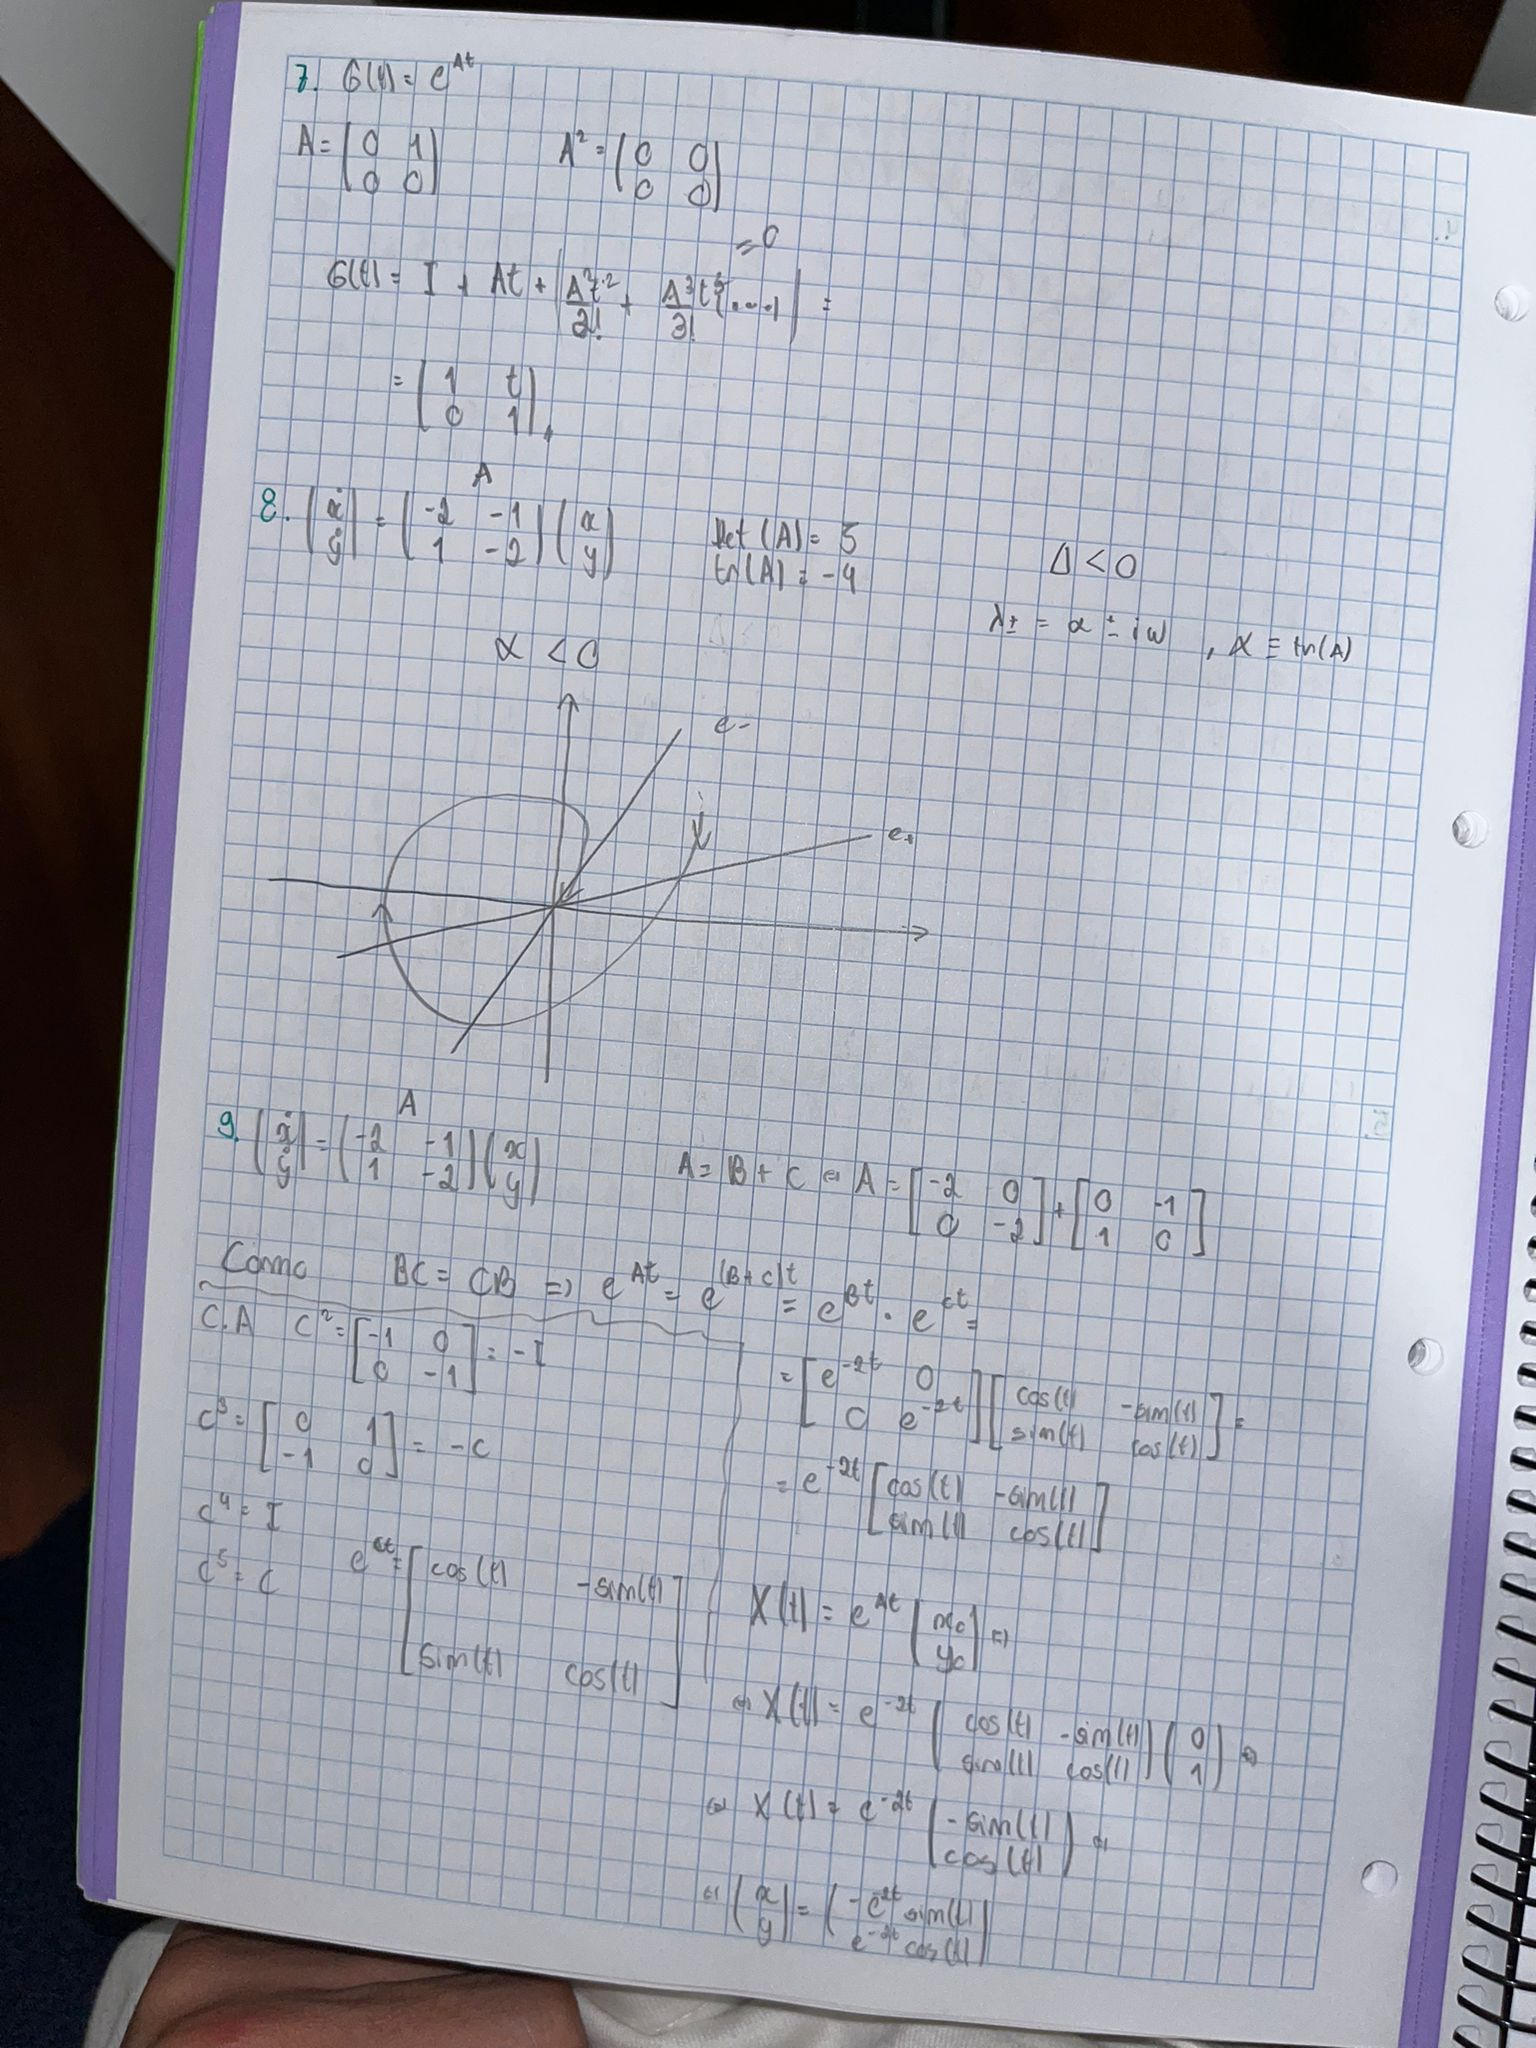 7. G(t) = e^{At}
A = (0 1
0 0) A² = (0 0
0 0)
= 0
G(t) = I + At + | A²t²/2! + A³t³/3! (....) | =
= (1 t
0 1)
A
8. (ẋ
ẏ) = (-2 -1
1 -2) (x
y) Det(A) = 5
tn(A) = -4
Δ < 0
λ± = α ± iω , α ≡ tn(A)
α < 0
e-
e+
A
9. (ẋ
ẏ) = (-2 -1
1 -2) (x
y) A = B + C ⇔ A = [-2 0
0 -2] + [0 -1
1 0]
Como BC = CB => e^{At} = e^{(B+C)t} = e^{Bt} . e^{Ct} =
C.A C² = [-1 0
0 -1] = -I
C³ = [0 1
-1 0] = -C
C⁴ = I
C⁵ = C e^{Ct} = [cos(t) -sim(t)
sim(t) cos(t)]
= [e^{-2t} 0
0 e^{-2t}] [cos(t) -sim(t)
sim(t) cos(t)] =
= e^{-2t} [cos(t) -sim(t)
sim(t) cos(t)]
X(t) = e^{At} (x₀
y₀) ⇔
⇔ X(t) = e^{-2t} (cos(t) -sim(t)
sim(t) cos(t)) (0
1) ⇔
⇔ X(t) = e^{-2t} (-sim(t)
cos(t)) ⇔
⇔ (x
y) = (-e^{2t} sim(t)
e^{-2t} cos(t))